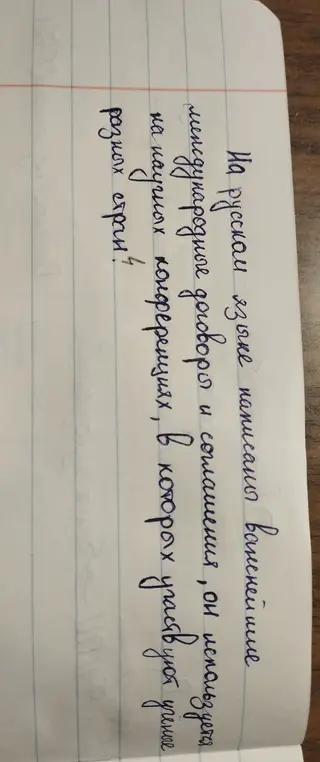 На русском языке написаны важнейшие
международные договоры и соглашения, он используется
на научных конференциях, в которых участвуют ученые
разных стран.⁴